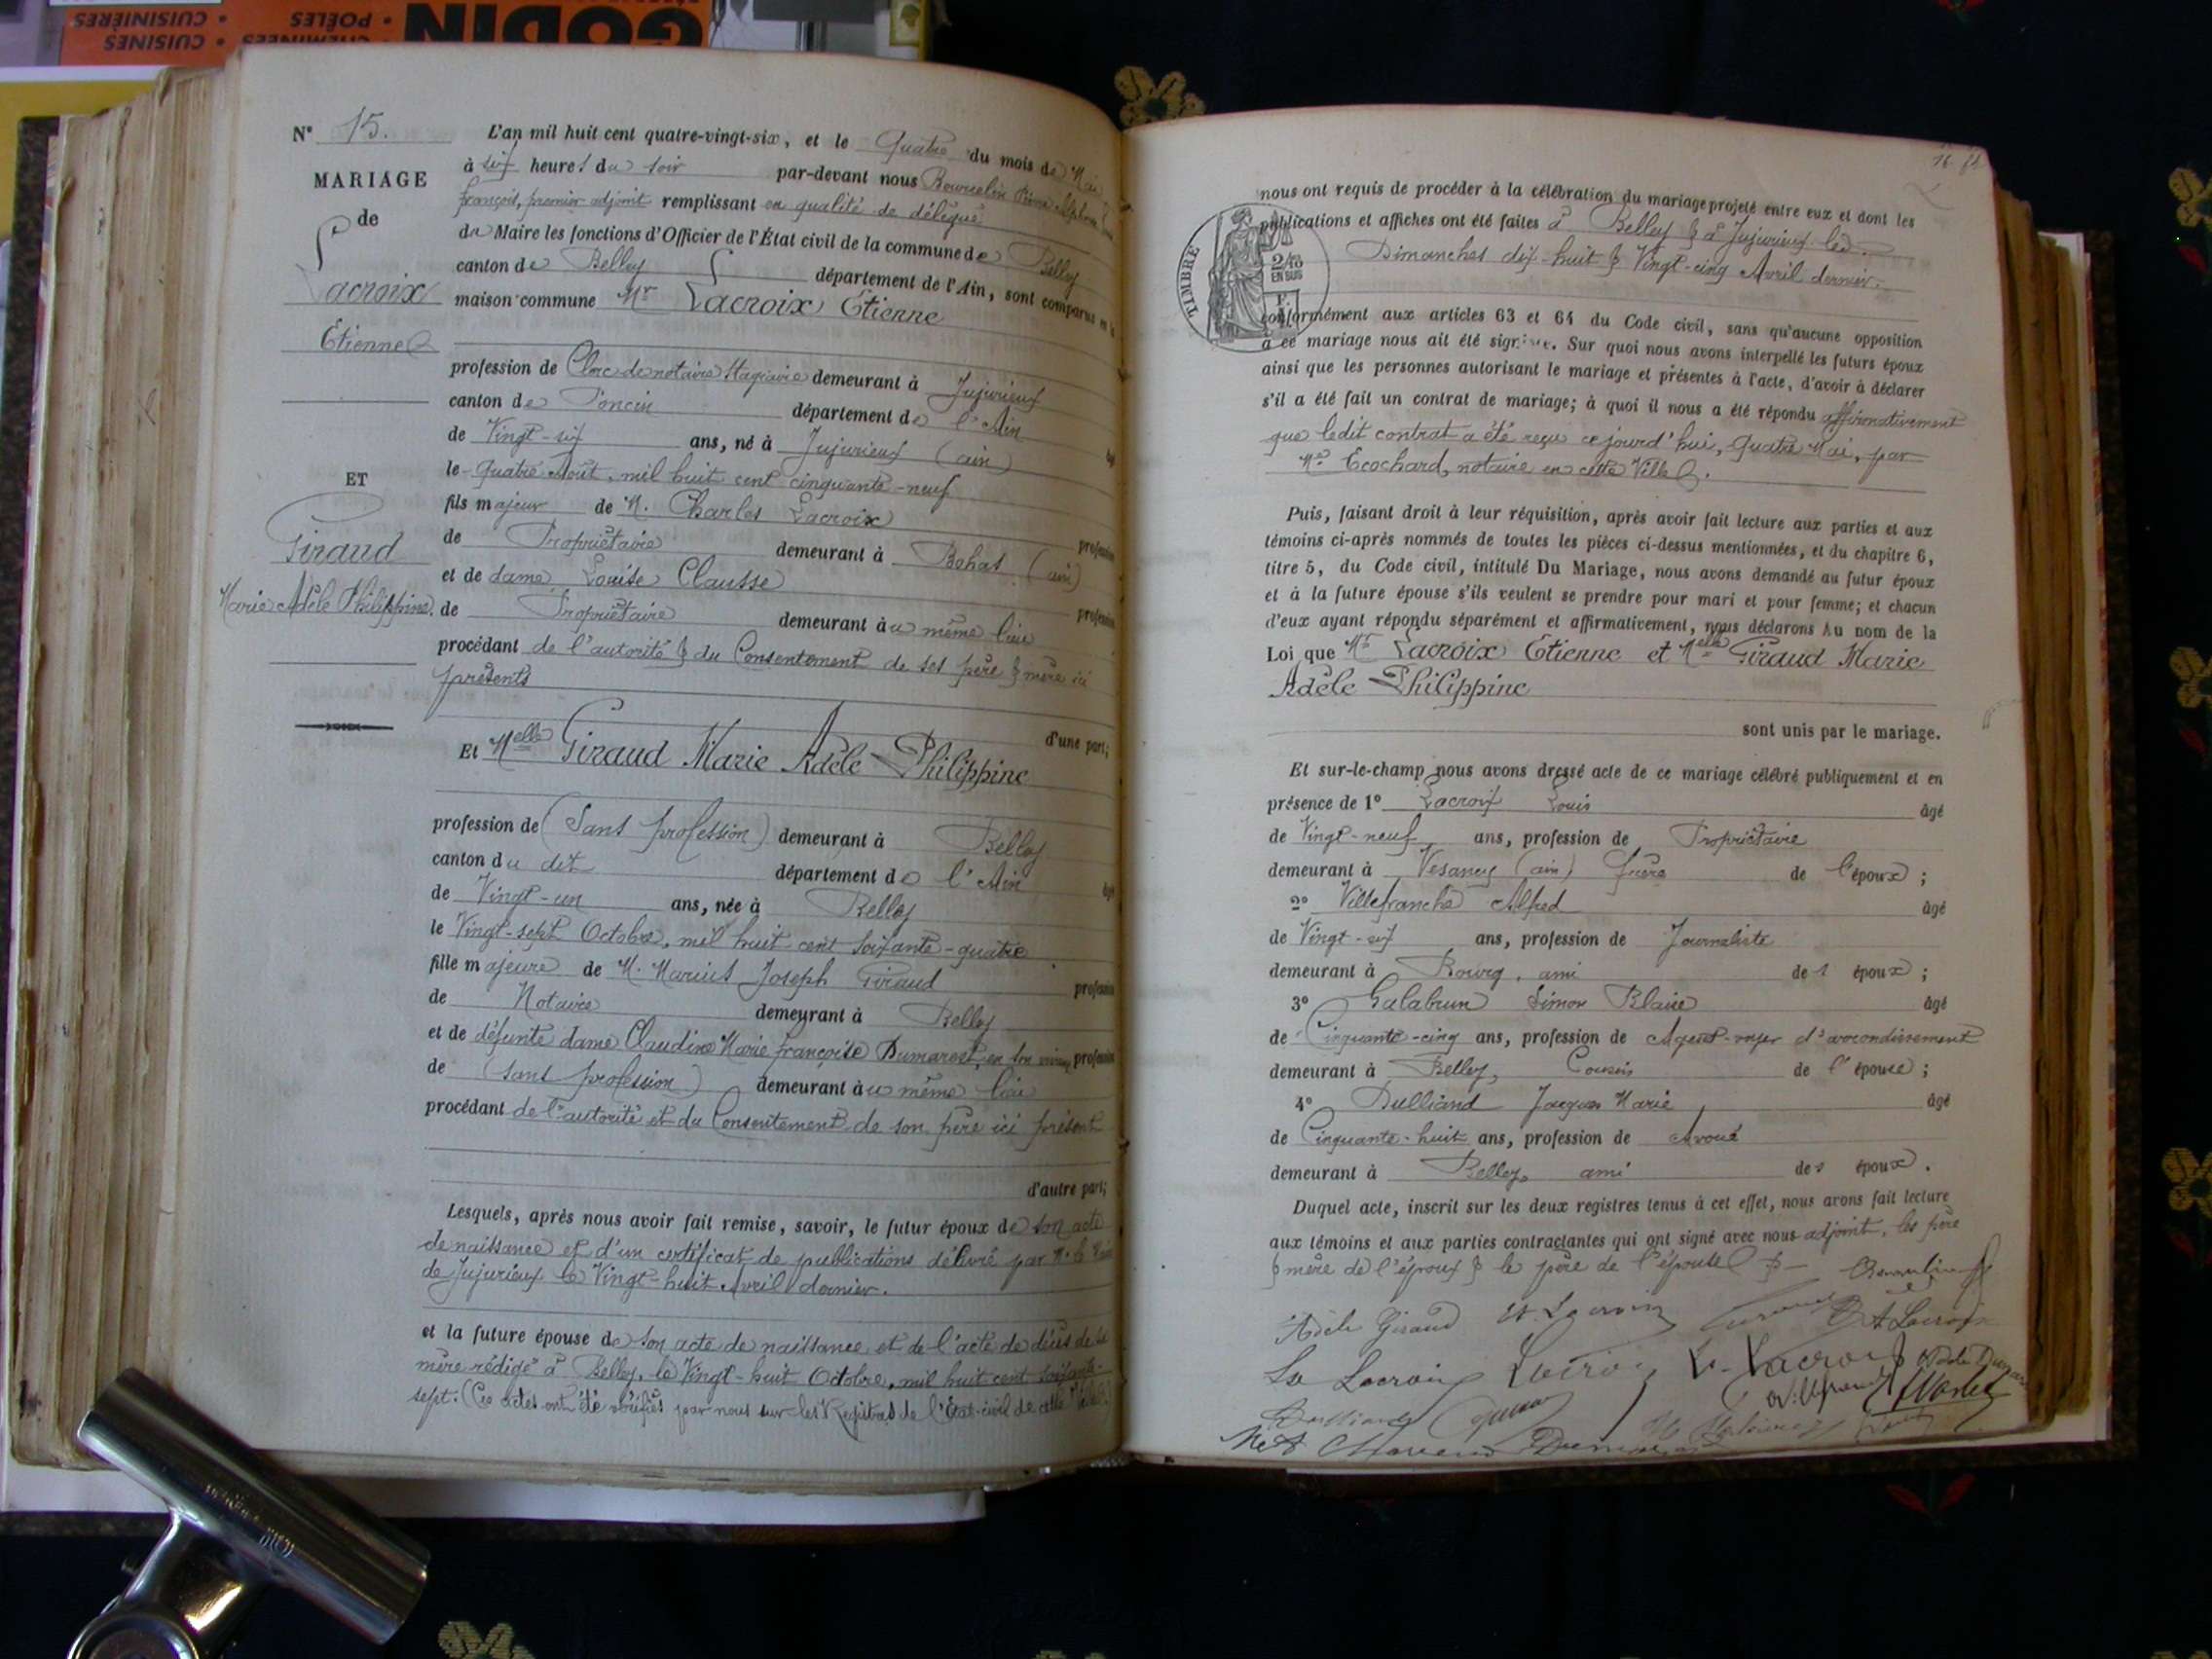 GODIN
CUISINIÈRES • POÊLES •
CUISINES • CHEMINÉES •
N° 15.
MARIAGE
de
Lacroix
Étienne
ET
Giraud
Marie Adèle Philippine.
L'an mil huit cent quatre-vingt-six, et le Quatre du mois de Mai
à six heures du soir par-devant nous Bourcelin Pierre Alphonse
françois, premier adjoint remplissant en qualité de délégué
du Maire les fonctions d'Officier de l'État civil de la commune de Belley
canton de Belley département de l'Ain, sont comparus en la
maison commune Mr Lacroix Étienne
profession de Clerc de notaire stagiaire demeurant à Jujurieux
canton de Poncin département de l'Ain
de Vingt-six ans, né à Jujurieux (ain) âgé
le quatre Août, mil huit cent cinquante-neuf
fils majeur de M. Charles Lacroix
de Propriétaire demeurant à Bohas (ain) profession
et de dame Louise Clausse
de Propriétaire demeurant au même lieu profession
procédant de l'autorité & du Consentement de ses père & mère ici
présents
d'une part;
Et Melle Giraud Marie Adèle Philippine
profession de (Sans profession) demeurant à Belley
canton du dit département de l'Ain
de Vingt-un ans, née à Belley âgé
le Vingt-sept Octobre, mil huit cent soixante-quatre
fille majeure de M. Marius Joseph Giraud profession
de Notaire demeurant à Belley
et de défunte dame Claudine Marie françoise Dumarest, en son vivant profession
de (sans profession) demeurant au même lieu
procédant de l'autorité et du Consentement de son père ici présent
d'autre part;
Lesquels, après nous avoir fait remise, savoir, le futur époux de son acte
de naissance et d'un certificat de publications délivré par M. le Maire
de Jujurieux le Vingt-huit Avril dernier.
et la future épouse de son acte de naissance et de l'acte de décès de sa
mère rédigé à Belley, le Vingt-huit Octobre, mil huit cent soixante-
sept: (Ces actes ont été vérifiés par nous sur les Registres de l'État-civil de cette Ville.)
nous ont requis de procéder à la célébration du mariage projeté entre eux et dont les
publications et affiches ont été faites à Belley & à Jujurieux les
Dimanches dix-huit & Vingt-cinq Avril dernier.
TIMBRE
2/10
EN SUS
conformément aux articles 63 et 64 du Code civil, sans qu'aucune opposition
à ce mariage nous ait été signifiée. Sur quoi nous avons interpellé les futurs époux
ainsi que les personnes autorisant le mariage et présentes à l'acte, d'avoir à déclarer
s'il a été fait un contrat de mariage; à quoi il nous a été répondu affirmativement
que ledit contrat a été reçu ce jourd'hui, quatre Mai, par
Me Ecochard, notaire en cette Ville.
Puis, faisant droit à leur réquisition, après avoir fait lecture aux parties et aux
témoins ci-après nommés de toutes les pièces ci-dessus mentionnées, et du chapitre 6,
titre 5, du Code civil, intitulé Du Mariage, nous avons demandé au futur époux
et à la future épouse s'ils veulent se prendre pour mari et pour femme; et chacun
d'eux ayant répondu séparément et affirmativement, nous déclarons Au nom de la
Loi que Mr Lacroix Étienne et Melle Giraud Marie
Adèle Philippine
sont unis par le mariage.
Et sur-le-champ nous avons dressé acte de ce mariage célébré publiquement et en
présence de 1° Lacroix Louis âgé
de Vingt-neuf ans, profession de Propriétaire
demeurant à Vesancy (ain) frère de l'époux;
2° Villefranche Alfred âgé
de Vingt-six ans, profession de Journaliste
demeurant à Bourg, ami des époux;
3° Galabrun Simon Blaise âgé
de Cinquante-cinq ans, profession de Agent-voyer d'arrondissement
demeurant à Belley, Cousin de l'épouse;
4° Dulliand Jacques Marie âgé
de Cinquante-huit ans, profession de Avoué
demeurant à Belley, ami des époux.
Duquel acte, inscrit sur les deux registres tenus à cet effet, nous avons fait lecture
aux témoins et aux parties contractantes qui ont signé avec nous adjoint, les père
& mère de l'époux & le père de l'épouse
Adèle Giraud Et. Lacroix A Lacroix
Ls Lacroix Lacroix L. Lacroix